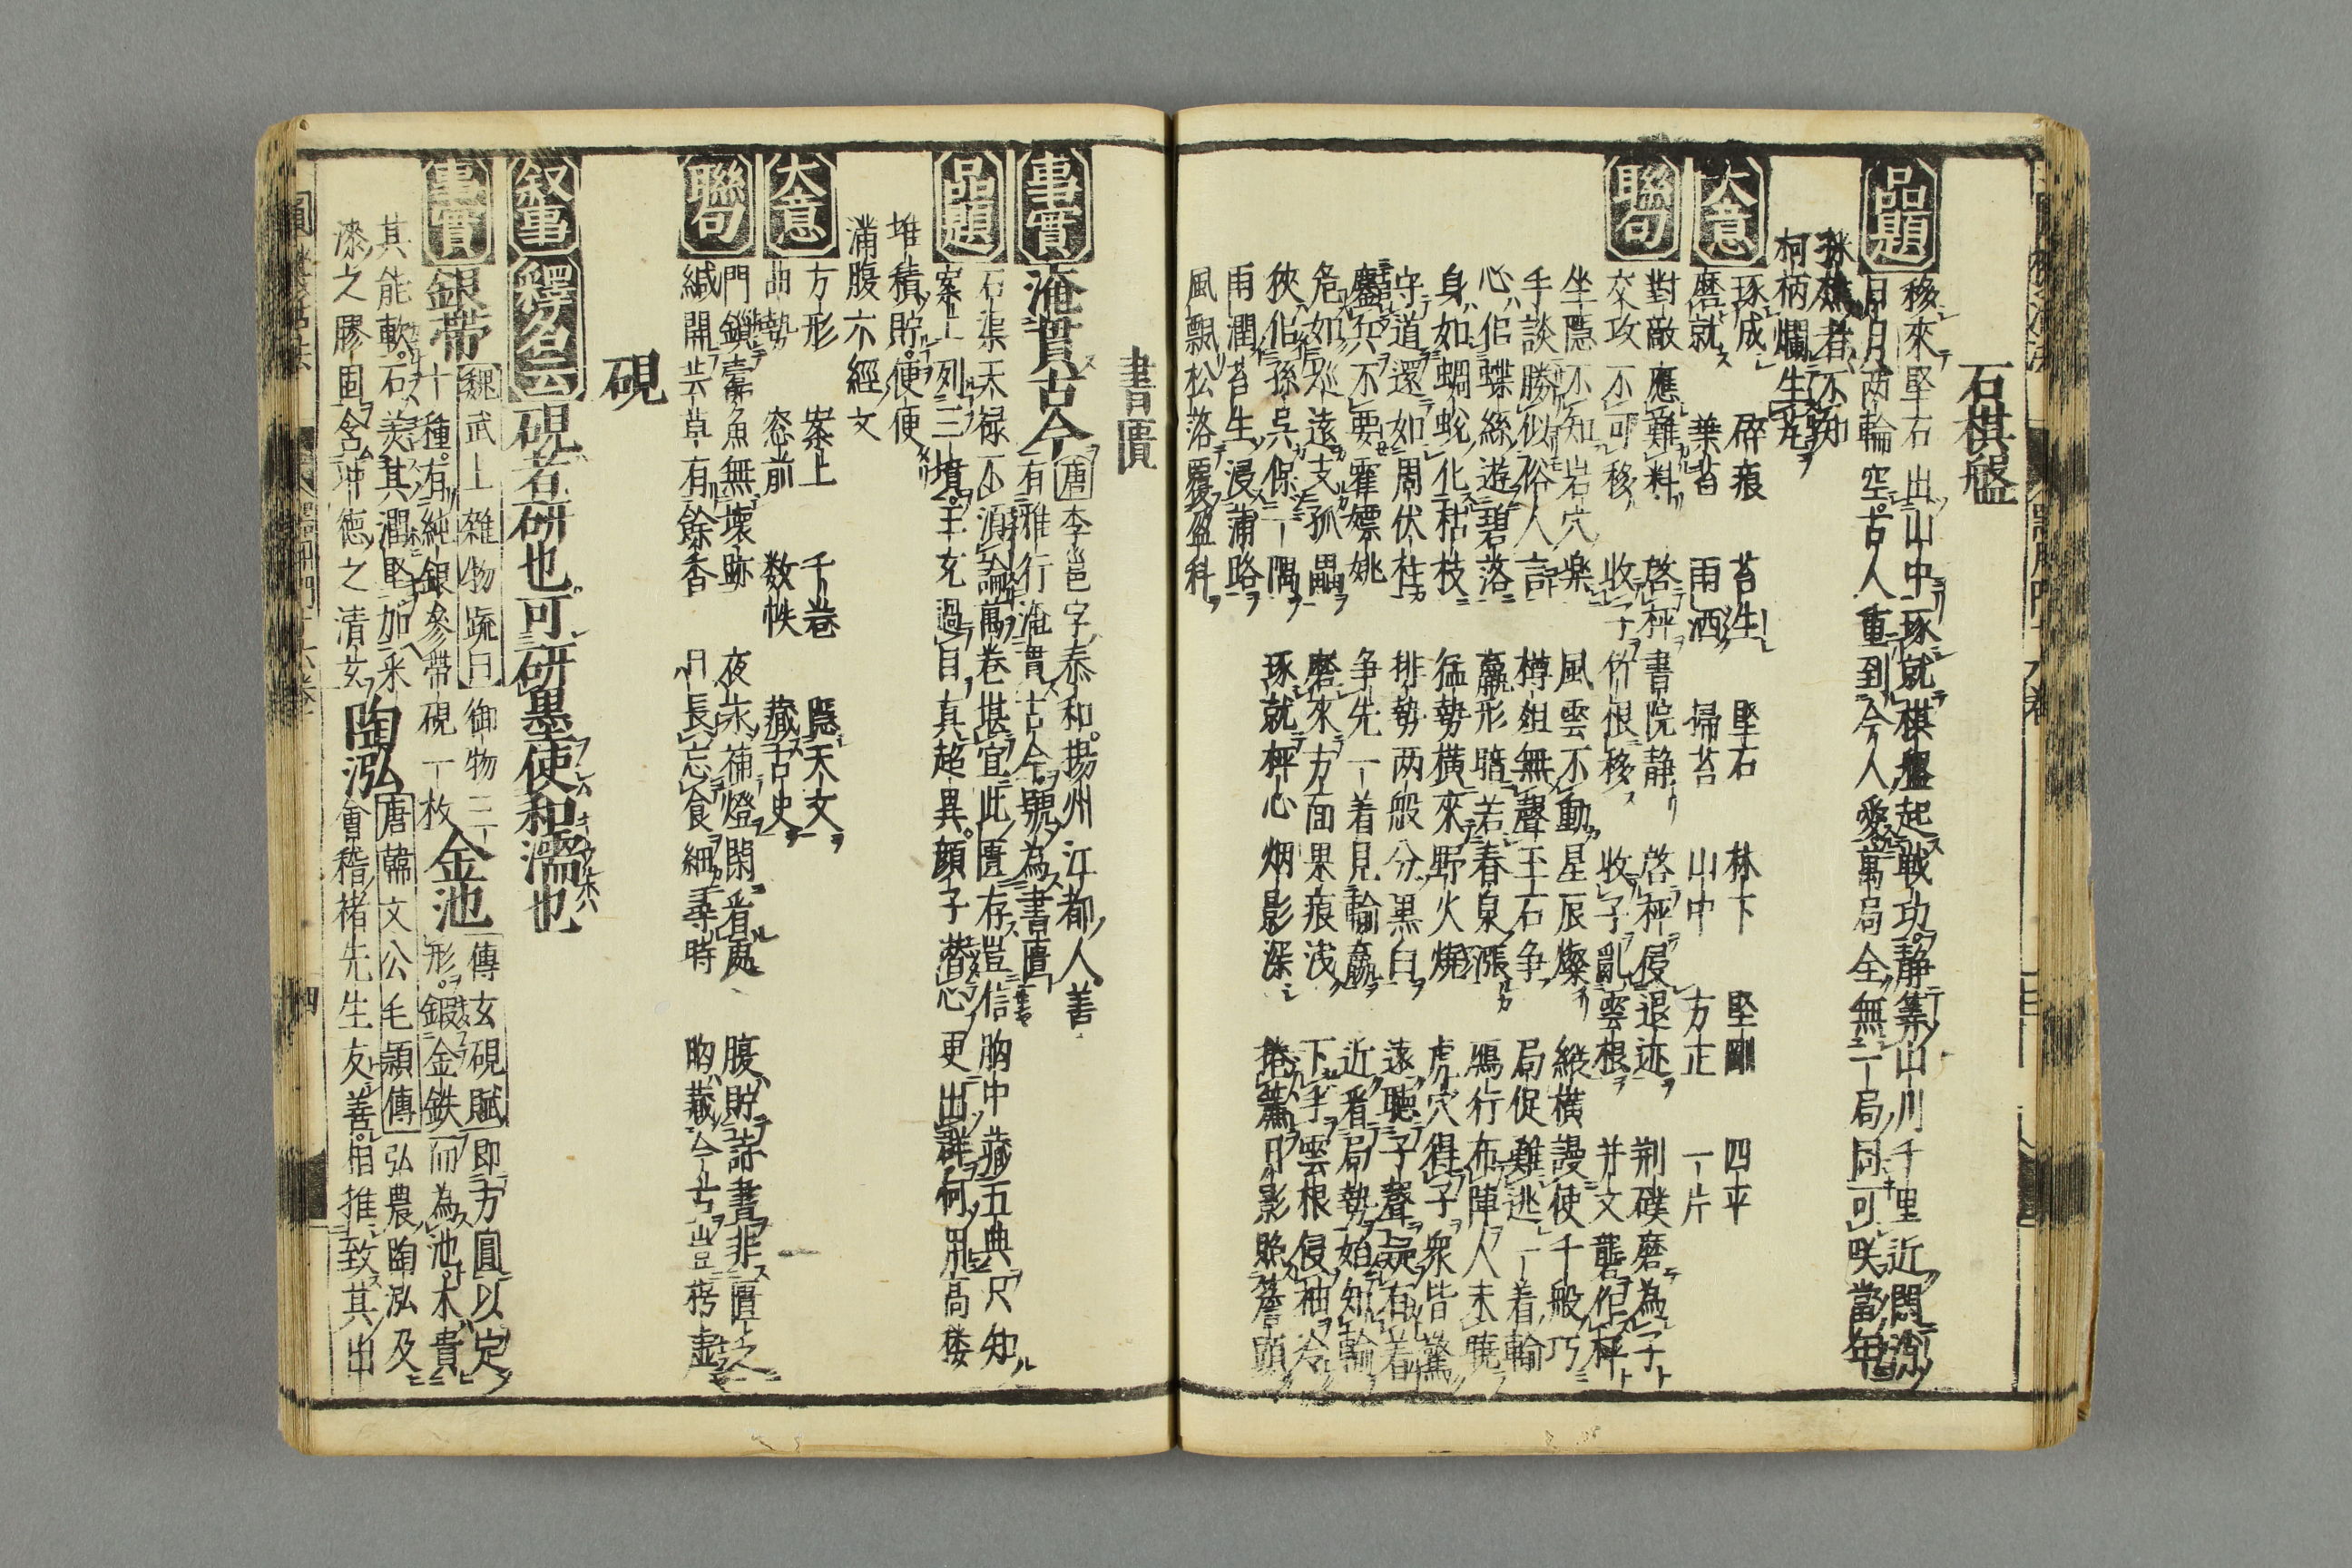 石棋盤
品題
移來堅石出山中琢就棋盤起戰功靜集山川千里近閙
日月兩輪空古人重到今人愛萬局全無一局同可咲當年
樵者不知
柯柄爛生花
大意
琢成 碎痕 苔生 堅石 林下 堅剛 四平
磨就 葉苔 雨洒 掃苔 山中 方正 一片
聯句
對敵應難料 啓枰書院静 啓枰侵退迹 荆礫磨為子
交攻不可移 收子竹恨移 收子亂雲根 并文礱作枰
坐隱不知岩穴楽 風雲不動星辰燦 縱横謾使千般巧
手談勝似俗人言 樽俎無聲玉石争 局促難逃一着輸
心似蝶絲遊碧落 贏形暗若春泉漲 鴈行布陣人未曉
身如蜩蛻化枯枝 猛勢横來野火燒 虎穴得子衆皆驚
守道還如周伏柱 排勢两般分黒白 遠聴子聲疑石着
鏖兵不要霍嫖姚 争先一着見輸贏 近看局勢始知輸
危如巡遠支孤壘 磨來方面果痕浅 下手雲根侵袖冷
狹佀孫呉保一隅 琢就枰心烟影深 捲簾日影照簷頭
雨潤苔生浸蒲路
風飄松落覆盈科
書匱
事實
淹貫古今
有雅行淹貫古今號為書匱
唐李邕字泰和揚州江都人善
品題
石渠天禄不須論萬卷堪宜此匱存豈信胸中藏五典尺知
案上列三墳王充過目真超異顔子潜心更出群何用高楼
堆積貯便便
滿腹六經文
大意
方形 案上 千卷 隱天文
曲勢 窓前 数帙 藏古史
聯句
門鎖蠧魚無壊跡 夜永補燈閑看處 腹貯詩書非匱乏
緘開芸草有餘香 日長忘食細尋時 胸藏今古豈枵虚
硯
叙事
釋名云
硯者研也可研墨使和濡也
事實
銀帯
魏武上雜物䟽曰御物三
十種有純銀參帯硯一枚
金池
傳玄硯賦即方圓以定
形鍜金鉄而為池木貴
其能軟石羙其潤堅加采
漆之膠固含冲徳之清玄
陶泓
唐韓文公毛頴傳弘農陶泓及
會稽楮先生友善相推致其出